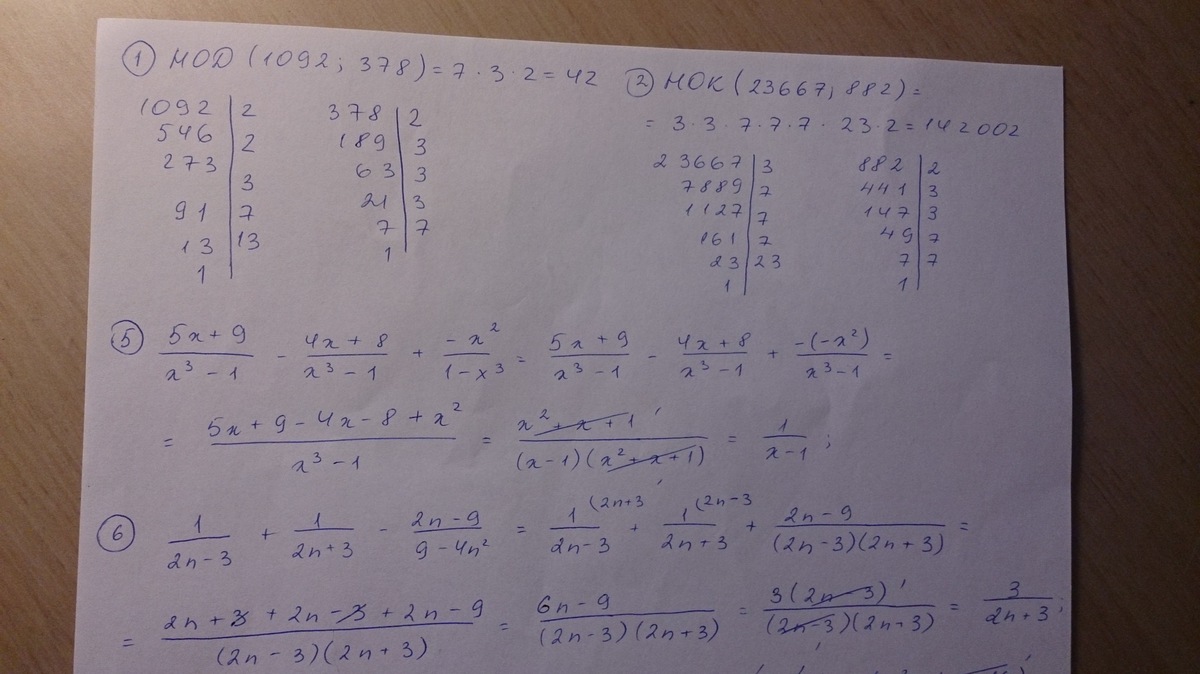 ① НОД (1092; 378) = 7 · 3 · 2 = 42
1092 | 2
546 | 2
273
| 3
91 | 7
13 | 13
1 |
378 | 2
189 | 3
63 | 3
21 | 3
7 | 7
1
② НОК (23667; 882) =
= 3 · 3 · 7 · 7 · 7 · 23 · 2 = 142002
23667 | 3
7889 | 7
1127 | 7
161 | 7
23 | 23
1 |
882 | 2
441 | 3
147 | 3
49 | 7
7 | 7
1 |
⑤ (5x + 9)/(x³ - 1) - (4x + 8)/(x³ - 1) + (- x²)/(1 - x³) = (5x + 9)/(x³ - 1) - (4x + 8)/(x³ - 1) + (-(-x²))/(x³ - 1) =
= (5x + 9 - 4x - 8 + x²)/(x³ - 1) = (x² + x + 1)/((x - 1)(x² + x + 1)) = 1/(x - 1);
⑥ 1/(2n - 3) + 1/(2n + 3) - (2n - 9)/(9 - 4n²) = 1 (2n+3/(2n - 3) + 1 (2n-3/(2n + 3) + (2n - 9)/((2n - 3)(2n + 3)) =
= (2n + 3 + 2n - 3 + 2n - 9)/((2n - 3)(2n + 3)) = (6n - 9)/((2n - 3)(2n + 3)) = 3(2n - 3)/((2n - 3)(2n + 3)) = 3/(2n + 3);